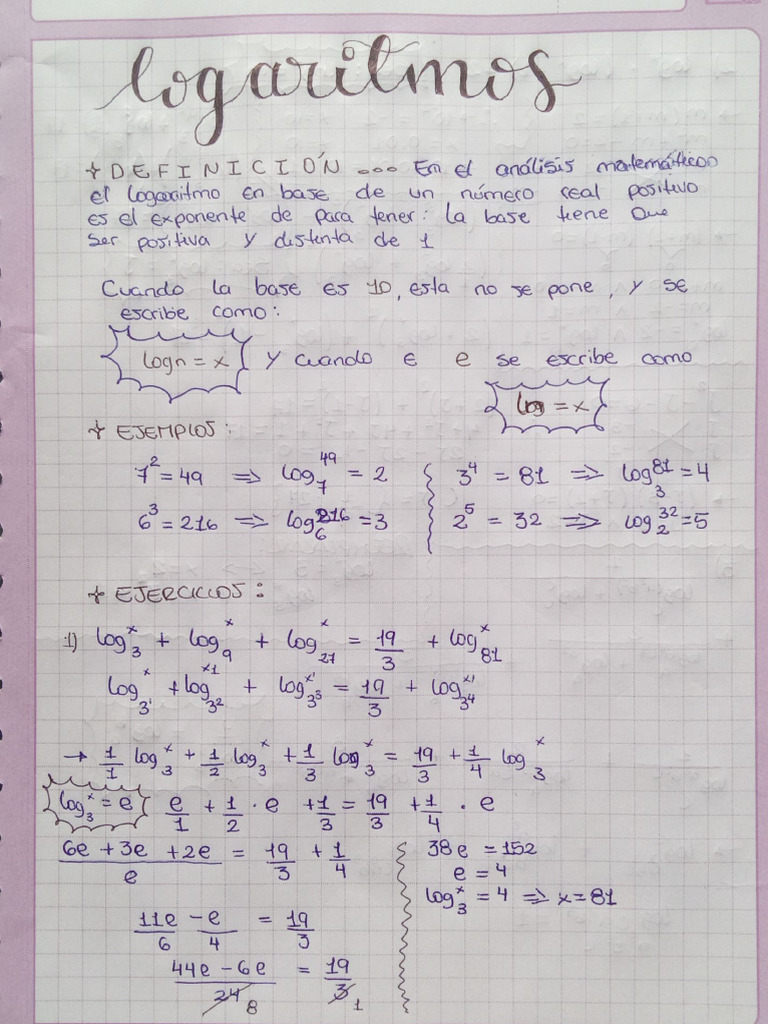 logaritmos
+ DEFINICIÓN ooo En el análisis matemáticoo
el logaritmo en base de un número real positivo
es el exponente de para tener: la base tiene que
ser positiva y distinta de 1
Cuando la base es 10, esta no se pone, y se
escribe como:
logn = x y cuando e e se escribe como
log = x
+ EJEMPLOS:
7² = 49 => log₇⁴⁹ = 2
3⁴ = 81 => log₃⁸¹ = 4
6³ = 216 => log₆²¹⁶ = 3
2⁵ = 32 => log₂³² = 5
+ EJERCICIOS:
1) log₃ˣ + log₉ˣ + log₂₇ˣ = 19/3 + log₈₁ˣ
log₃¹ˣ + log₃²ˣ¹ + log₃³ˣ' = 19/3 + log₃⁴ˣ'
→ 1/1 log₃ˣ + 1/2 log₃ˣ + 1/3 log₃ˣ = 19/3 + 1/4 log₃ˣ
log₃ˣ = e e/1 + 1/2 · e + 1/3 = 19/3 + 1/4 · e
6e + 3e + 2e / e = 19/3 + 1/4
11e/6 - e/4 = 19/3
44e - 6e / 24 8 = 19 / 3 1
38e = 152
e = 4
log₃ˣ = 4 => x = 81